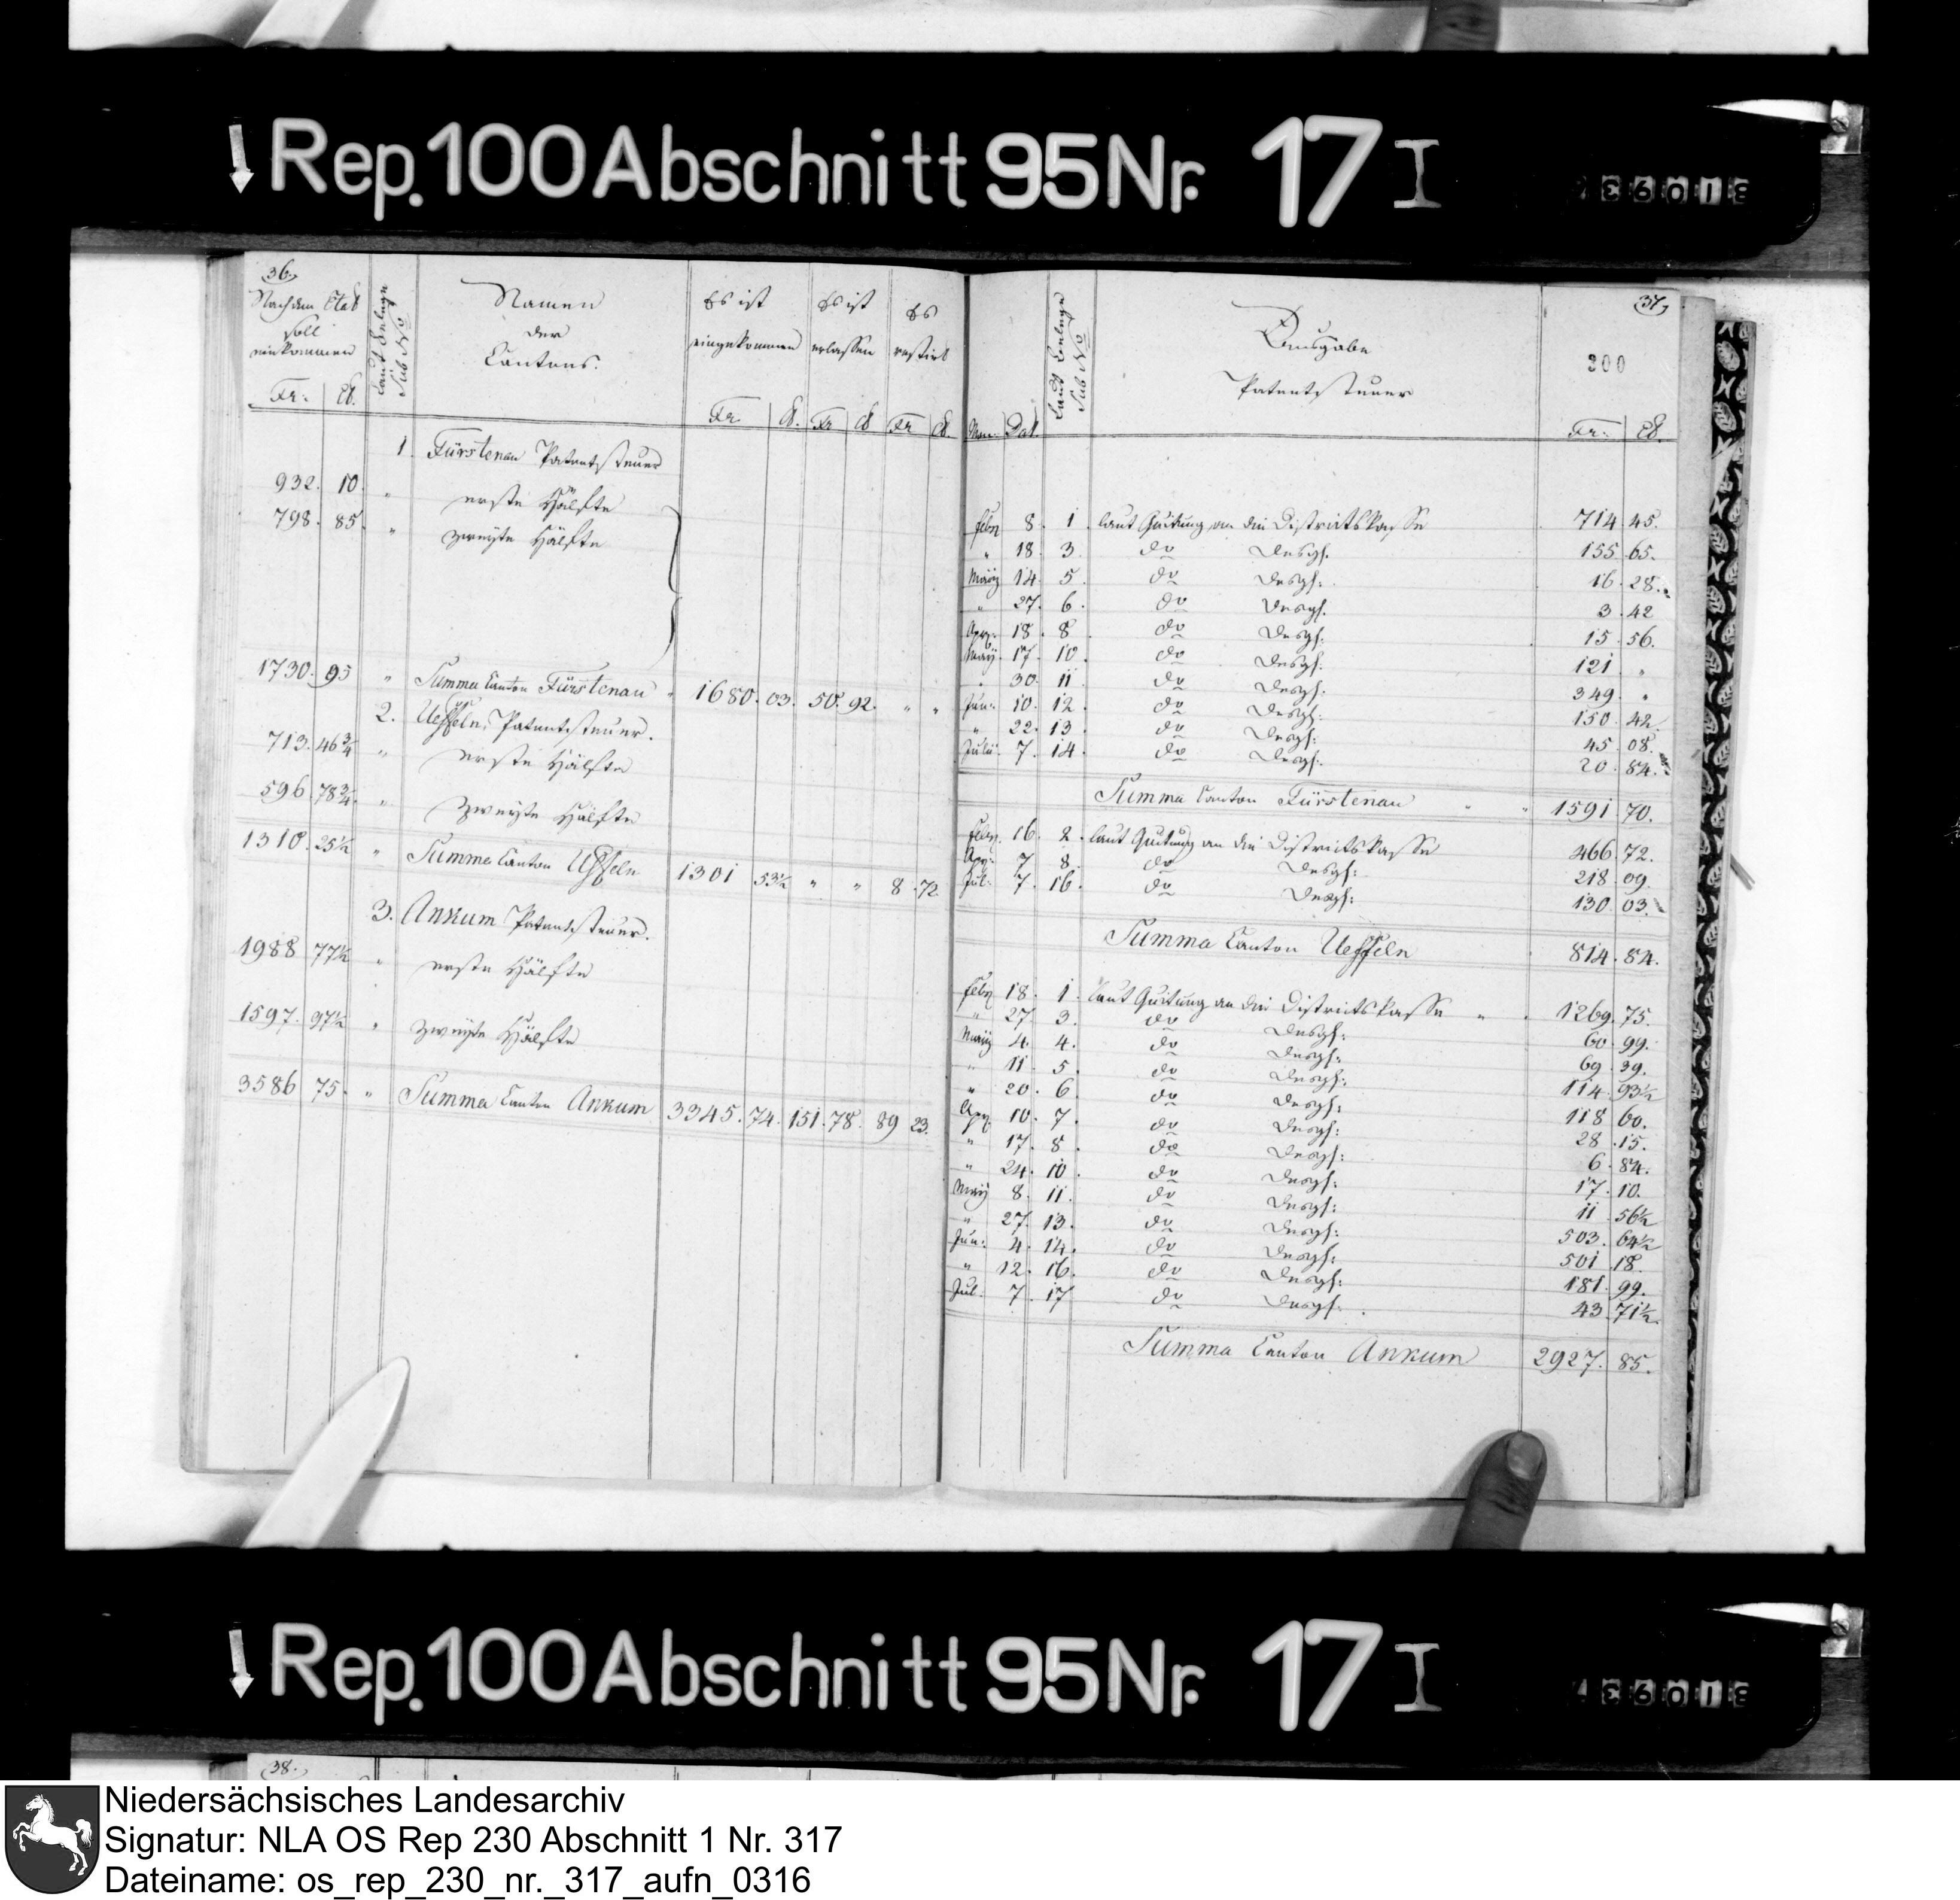 Rep. 100 Abschnitt 95 Nr. 17 I
36.
Nach dem Etat
soll
einkommen
Fr: Ct.
Laut Belege
Sub No
Namen
der
Cantons.
Es ist
eingekommen
Fr. Ct.
Es ist
erlassen
Fr Ct
Es
restirt
Fr Ct.
1. Fürstenau Patentsteuer
932. 10. " erste Hälfte
798. 85. " zweyte Hälfte
1730. 95 " Summa Canton Fürstenau " 1680. 03. 50. 92. " "
2. Ueffeln, Patentsteuer.
713. 46 3/4 " erste Hälfte
596. 78 3/4. " zweyte Hälfte
1310. 25 1/2 " Summa Canton Ueffeln 1301 53 1/2 " " 8. 72
3. Ankum Patentsteuer.
1988 77 1/2 " erste Hälfte
1597. 97 1/2 " zweyte Hälfte
3586 75. " Summa Canton Ankum 3345. 74. 151. 78. 89 23.
37.
Mon: Dat.
Laut Beelege
Sub No
Ausgabe
Patentsteuer
200
Fr: Ct.
Febr 8. 1. laut Quitung an die Districtskasse 714. 45.
" 18. 3. do desgl. 155. 65.
März 14. 5. do desgl: 16. 28.
" 27. 6. do desgl. 3. 42
Apr: 18. 8. do desgl: 15. 56.
May. 17. 10. do desgl: 121. "
" 30. 11. do desgl: 349. "
Jun: 10. 12. do desgl: 150. 42.
" 22. 13. do desgl: 45. 08.
Julii. 7. 14. do desgl: 20. 84.
Summa Canton Fürstenau " " 1591. 70.
Febr. 16. 2. laut Quitung an die Districtskasse 466. 72.
Apr: 7. 8. do desgl: 218. 09.
Jul: 7. 16. do desgl: 130. 03.
Summa Canton Ueffeln 814. 84.
Febr 18. 1. laut Quitung an die Districtskasse " " 1269. 75.
" 27. 3. do desgl: 60. 99.
März 4. 4. do desgl: 69. 39.
" 11. 5. do desgl: 114. 93 1/2
" 20. 6. do desgl: 118. 60.
Apr. 10. 7. do desgl: 28. 15.
" 17. 8. do desgl: 6. 84.
" 24. 10. do desgl: 17. 10.
May 8. 11. do desgl: 11. 56 1/2
" 27. 13. do desgl: 503. 64 1/2
Jun: 4. 14. do desgl: 501. 18.
" 12. 16. do desgl: 181. 99.
Jul. 7. 17 do desgl: 43. 71 1/2.
Summa Canton Ankum 2927. 85.
Rep. 100 Abschnitt 95 Nr. 17 I
38.
Niedersächsisches Landesarchiv
Signatur: NLA OS Rep 230 Abschnitt 1 Nr. 317
Dateiname: os_rep_230_nr._317_aufn_0316